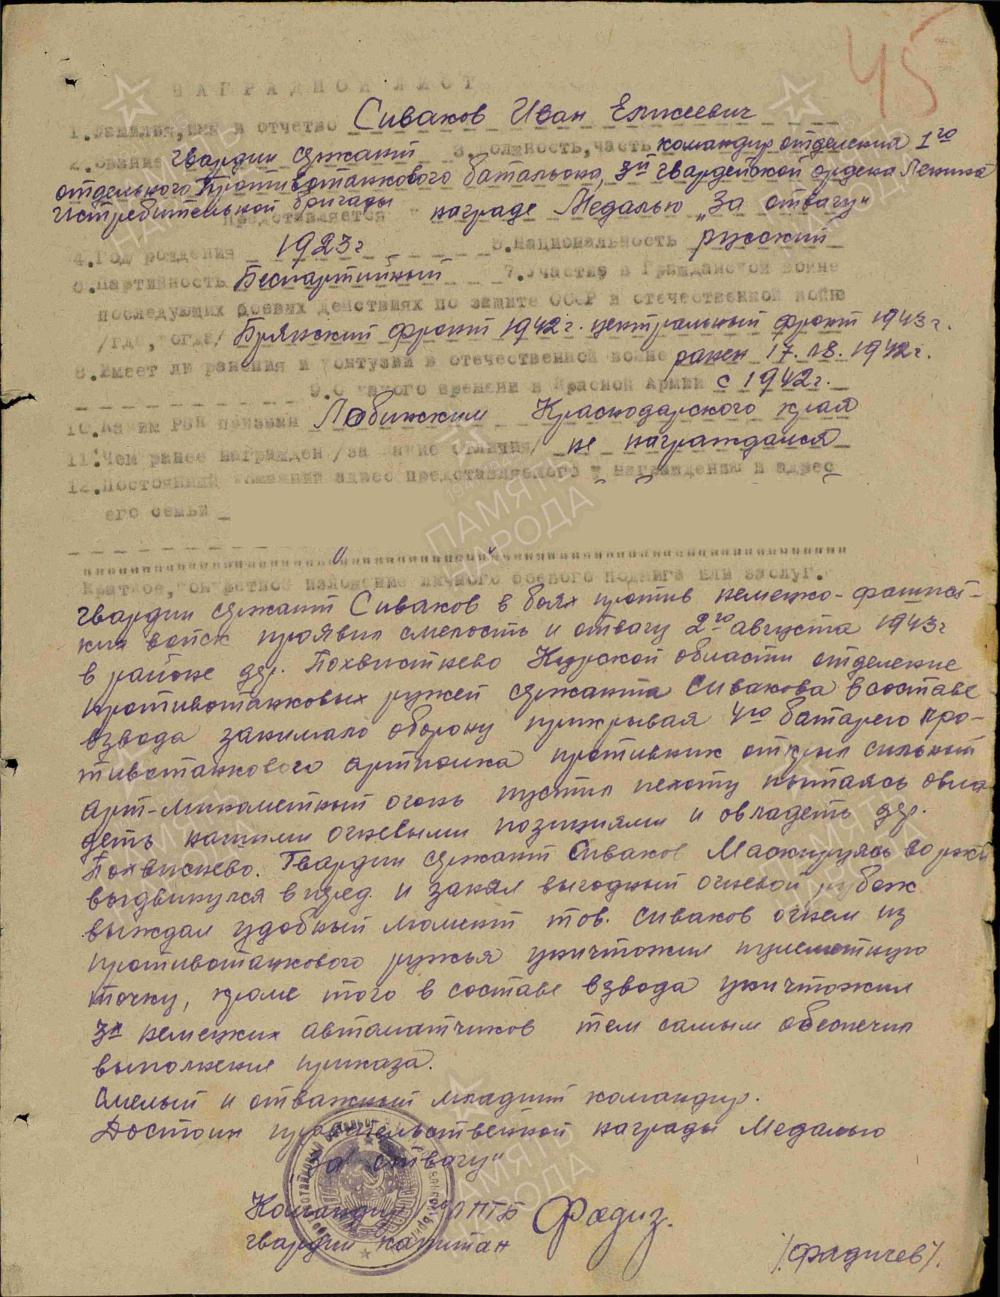 45
НАГРАДНОЙ ЛИСТ
1. Фамилия, имя и отчество Сиваков Иван Елисеевич
2. Звание гвардии сержант 3. Должность, часть командир отделения 1го
отдельного Противотанкового батальона, 3й гвардейской ордена Ленина
Истребительной бригады
Представляется к награде Медалью „За отвагу"
4. Год рождения 1923 г 5. Национальность русский
6. Партийность Беспартийный 7. Участие в Гражданской войне
последующих боевых действиях по защите СССР и отечественной войне
/где, когда/ Брянский фронт 1942 г. центральный фронт 1943 г.
8. Имеет ли ранения и контузии в отечественной войне ранен 17. 1942 г.
9. С какого времени в Красной Армии с 1942 г.
10. Каким РВК призван Лабинским Краснодарского края
11. Чем ранее награжден /за какие отличия/ не награждался
12. Постоянный домашний адрес представляемого к награждению и адрес
его семьи
Краткое, конкретное изложение личного боевого подвига или заслуг.
гвардии сержант Сиваков в боях против немецко-фашист-
ких войск проявил смелость и отвагу 2го августа 1943 г
в районе дер. Похвистнево Курской области отделение
противотанковых ружей сержанта Сивакова в составе
взвода занимало оборону прикрывая 4ю батарею про-
тивотанкового артполка противник открыл сильный
арт-минометный огонь пустил пехоту пытаясь овла
деть нашими огневыми позициями и овладеть дер.
Похвиснево. Гвардии сержант Сиваков Маскируясь во ржи
выдвинулся вперед и занял выгодный огневой рубеж
выждал удобный момент тов. Сиваков огнем из
противотанкового ружья уничтожил пулеметную
точку, кроме того в составе взвода уничтожил
немецких автоматчиков тем самым обеспечил
выполнение приказа.
Смелый и отважный младший командир.
Достоин правительственной награды Медалью
„За отвагу"
Командир ОПТБ
гвардии капитан
/Фадичев/.
ПАМЯТЬ НАРОДА